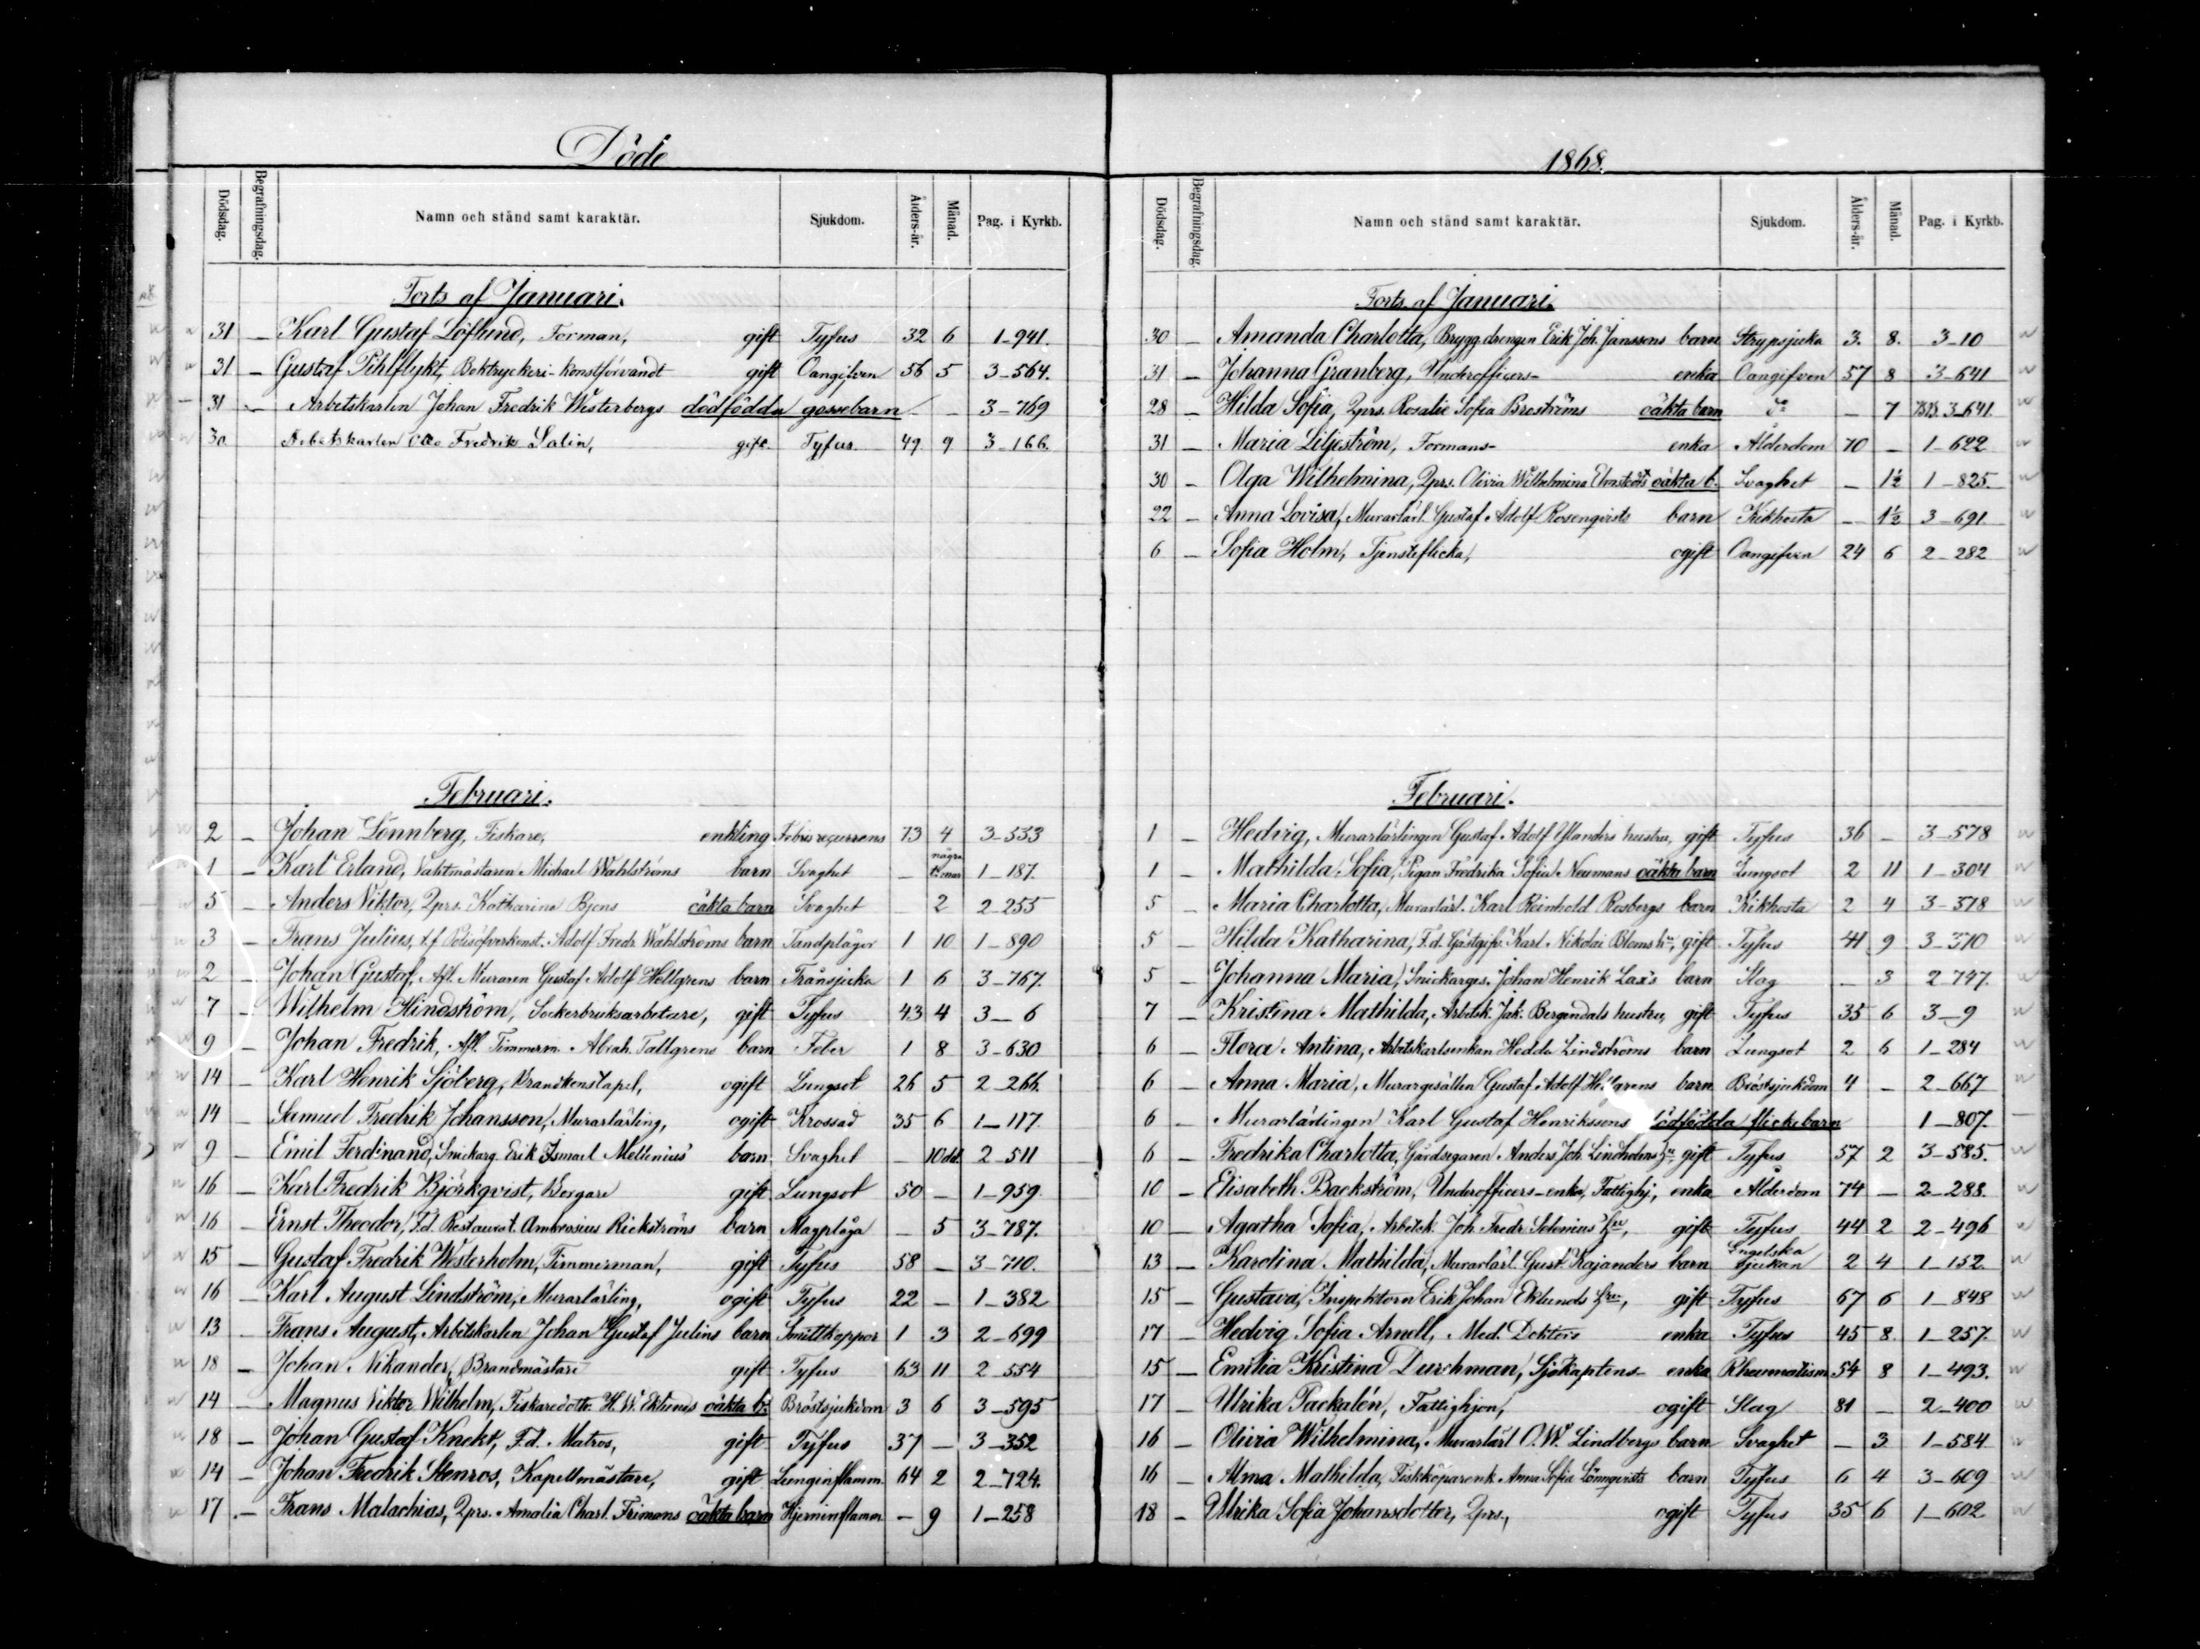 Döde
Dödsdag. Begrafningsdag. Namn och stånd samt karaktär. Sjukdom. Ålders-år. Månad. Pag. i Kyrkb.
Forts af Januari.
31 — Karl Gustaf Löflund, Forman, gift Tyfus 32 6 1-941.
31 — Gustaf Pihlflykt, Boktryckeri-konstförvandt gift Oangifven 56 5 3-564.
31 — Arbetskarlen Johan Fredrik Westerbergs dödfödda gossebarn — — 3-769
30 Arbetskarlen Otto Fredrik Salin, gift. Tyfus. 49. 9. 3-166.
Februari.
2 — Johan Lönnberg, Fiskare, enkling Febris recurrens 73 4 3-533
1 — Karl Erland, Vaktmästaren Michael Wahlströms barn Svaghet — några timar 1-187.
5 — Anders Viktor, Qprs. Katharina Bjons oäkta barn Svaghet 2 2-255
3 — Frans Julius, t.f. Polisöfverkonst. Adolf Fredr. Wahlströms barn Tandplågor 1 10 1-890
2 — Johan Gustaf, Afl. Muraren Gustaf Adolf Hellgrens barn Trånsjuka 1 6 3-767.
7 — Wilhelm Hindström, Sockerbruksarbetare, gift Tyfus 43 4 3-6
9 — Johan Fredrik, Afl. Timmerm. Abrah. Tallgrens barn Feber 1 8 3-630
14 — Karl Henrik Sjöberg, Brandkonstapel, ogift Lungsot 26 5 2-266.
14 — Samuel Fredrik Johansson, Murarlärling, ogift Krossad 35 6 1-117.
9 — Emil Ferdinand, Snickarg. Erik Ismael Mellenius' barn Svaghet — 10 dd. 2-511
16 — Karl Fredrik Björkqvist, Borgare gift Lungsot 50 — 1-959.
16 — Ernst Theodor, F.d. Restaurat. Ambrosius Rickströms barn Magplåga — 5 3-787.
15 — Gustaf Fredrik Westerholm, Timmerman, gift Tyfus 58 — 3-710.
16 — Karl August Lindström, Murarlärling, ogift Tyfus 22 — 1-382
13 — Frans August, Arbetskarlen Johan Gustaf Julins barn Smittkoppor 1 3 2-699
18 — Johan Nikander, Brandmästare gift Tyfus 63 11 2-554
14 — Magnus Viktor Wilhelm, Fiskaredottr. H. W. Eklunds oäkta b. Bröstsjukdom 3 6 3-595
18 — Johan Gustaf Knekt, F.d. Matros, gift Tyfus 37 — 3-352
14 — Johan Fredrik Stenros, Kapellmästare, gift Lunginflamm. 64 2 2-724.
17 — Frans Malachias, Qprs. Amalia Charl. Frimans oäkta barn Hjerninflamm — 9 1-258
1868.
Dödsdag. Begrafningsdag. Namn och stånd samt karaktär. Sjukdom. Ålders-år. Månad. Pag. i Kyrkb.
Forts. af Januari.
30 — Amanda Charlotta, Bryggdrengen Erik Joh. Janssons barn Strypsjuka 3. 8. 3-10
31 — Johanna Granberg, Underofficers- enka Oangifven 57 8 3-641
28 — Hilda Sofia, Qprs. Rosalie Sofia Broströms oäkta barn do — 7 3-641.
31 — Maria Liljeström, Formans- enka Ålderdom 70 — 1-622
30 — Olga Wilhelmina, Qprs. Olivia Wilhelmina oäkta b. Svaghet — 1½ 1-825.
22 — Anna Lovisa, Murarlärl. Gustaf Adolf Rosenqvists barn Kikhosta — 1½ 3-691
6 — Sofia Holm, Tjensteflicka, ogift Oangifven 24 6 2-282
Februari.
1 — Hedvig, Murarlärlingen Gustaf Adolf Ylanders hustru, gift Tyfus 36 — 3-578
1 — Mathilda Sofia, Pigan Fredrika Sofia Neumans oäkta barn Lungsot 2 11 1-304
5 — Maria Charlotta, Murarlärl. Karl Reinhold Rosbergs barn Kikhosta 2 4 3-378
5 — Hilda Katharina, F.d. Gästgifv. Karl Nikolai Bloms hu, gift Tyfus 41 9 3-310
5 — Johanna Maria, Snickarges. Johan Henrik Lax's barn Slag — 3 2-747.
7 — Kristina Mathilda, Arbetsk. Jak. Bergendals hustru, gift Tyfus 35 6 3-9
6 — Flora Antina, Arbetskarlsenkan Hedda Lindströms barn Lungsot 2 6 1-284
6 — Anna Maria, Murargesällen Gustaf Adolf barn Bröstsjukdom 4 — 2-667
6 — Murarlärlingen Karl Gustaf Henrikssons dödfödda flickebarn 1-807.
6 — Fredrika Charlotta, Gårdsegaren Anders Joh. Lindholms hu gift Tyfus 57 2 3-585.
10 — Elisabeth Backström, Underofficers-enka, Fattighj., enka Ålderdom 74 — 2-288.
10 — Agatha Sofia, Arbetsk. Joh. Fredr. Selenius' hu, gift Tyfus 44 2 2-496
13 — Karolina Mathilda, Murarlärl. Gust. Kajanders barn Engelska sjukan 2 4 1-152
15 — Gustava, Inspektorn Erik Johan Eklunds hu, gift Tyfus 67 6 1-848
17 — Hedvig Sofia Arnell, Med. Doktors enka Tyfus 45 8. 1-257.
15 — Emilia Kristina Durchman, Sjökaptens- enka Rheumatism 54 8 1-493.
17 — Ulrika Packalén, Fattighjon, ogift Slag 81 — 2-400
16 — Olivia Wilhelmina, Murarlärl O. W. Lindbergs barn Svaghet — 3 1-584
16 — Alma Mathilda, Fiskköparenk. Anna Sofia Lönnqvists barn Tyfus 6 4 3-609
18 — Ulrika Sofia Johansdotter, Qprs., ogift Tyfus 35 6 1-602